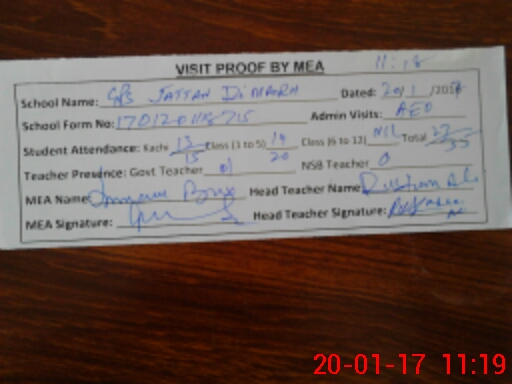 11:18
VISIT PROOF BY MEA
School Name: GPS JATTAN Di MARH Dated: 20/1/201
School Form No: Admin Visits: AEO
Student Attendance: Kachi 13/15 Class (1 to 5) 14/20 Class (6 to 12) NIL Total 27/35
Teacher Presence: Govt Teacher 01 NSB Teacher 0
MEA Name: Head Teacher Name:
MEA Signature: Head Teacher Signature:
20-01-17 11:19